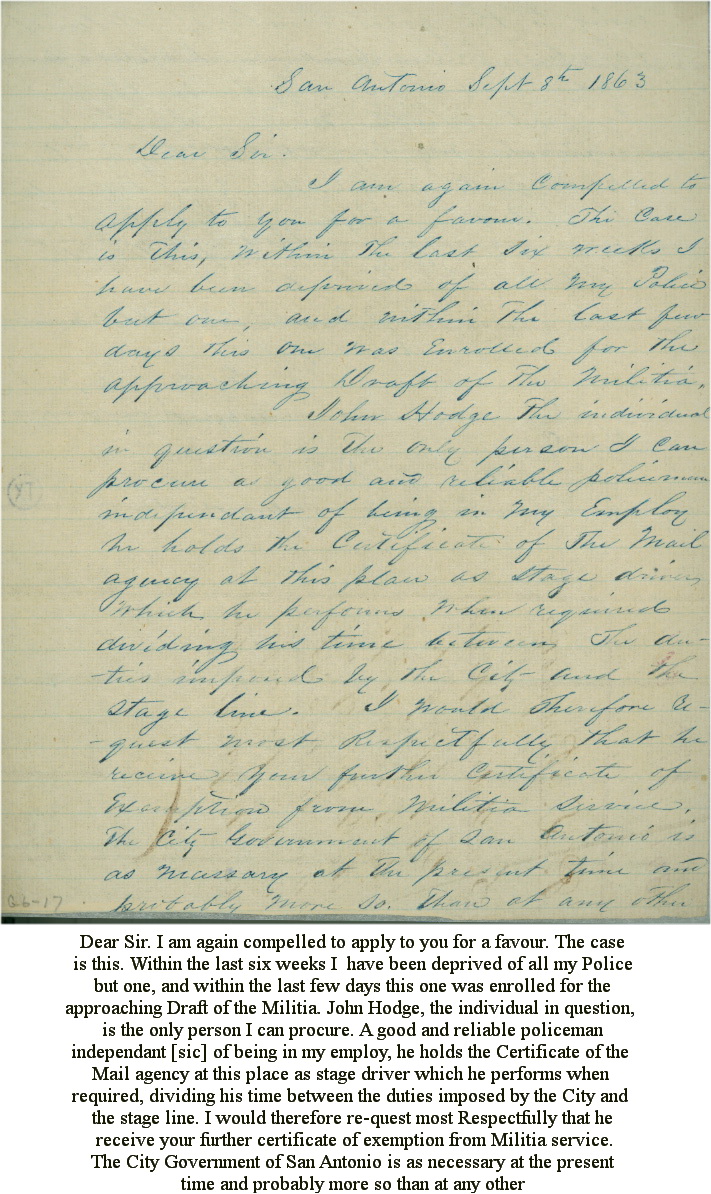 San Antonio Sept 8th 1863
Dear Sir.
I am again Compelled to
apply to you for a favour. The Case
is This, Within The last Six weeks I
have been deprived of all my Police
but one, and within The last few
days this one was Enrolled for the
approaching Draft of The Militia.
John Hodge The individual
in question is The only person I can
procure a good and reliable policeman
independant of being in my Employ
he holds the Certificate of The Mail
agency at this place as stage driver
Which he performs When required
dividing his time between The du-
-ties imposed by the City and the
Stage line. I would Therefore re-
-quest most Respectfully that he
receive your further Certificate of
Exemption from Militia Service.
The City Government of San Antonio is
as necessary at the present time and
probably more so. Than at any other
(87)
G6-17
Dear Sir. I am again compelled to apply to you for a favour. The case
is this. Within the last six weeks I have been deprived of all my Police
but one, and within the last few days this one was enrolled for the
approaching Draft of the Militia. John Hodge, the individual in question,
is the only person I can procure. A good and reliable policeman
independant [sic] of being in my employ, he holds the Certificate of the
Mail agency at this place as stage driver which he performs when
required, dividing his time between the duties imposed by the City and
the stage line. I would therefore re-quest most Respectfully that he
receive your further certificate of exemption from Militia service.
The City Government of San Antonio is as necessary at the present
time and probably more so than at any other